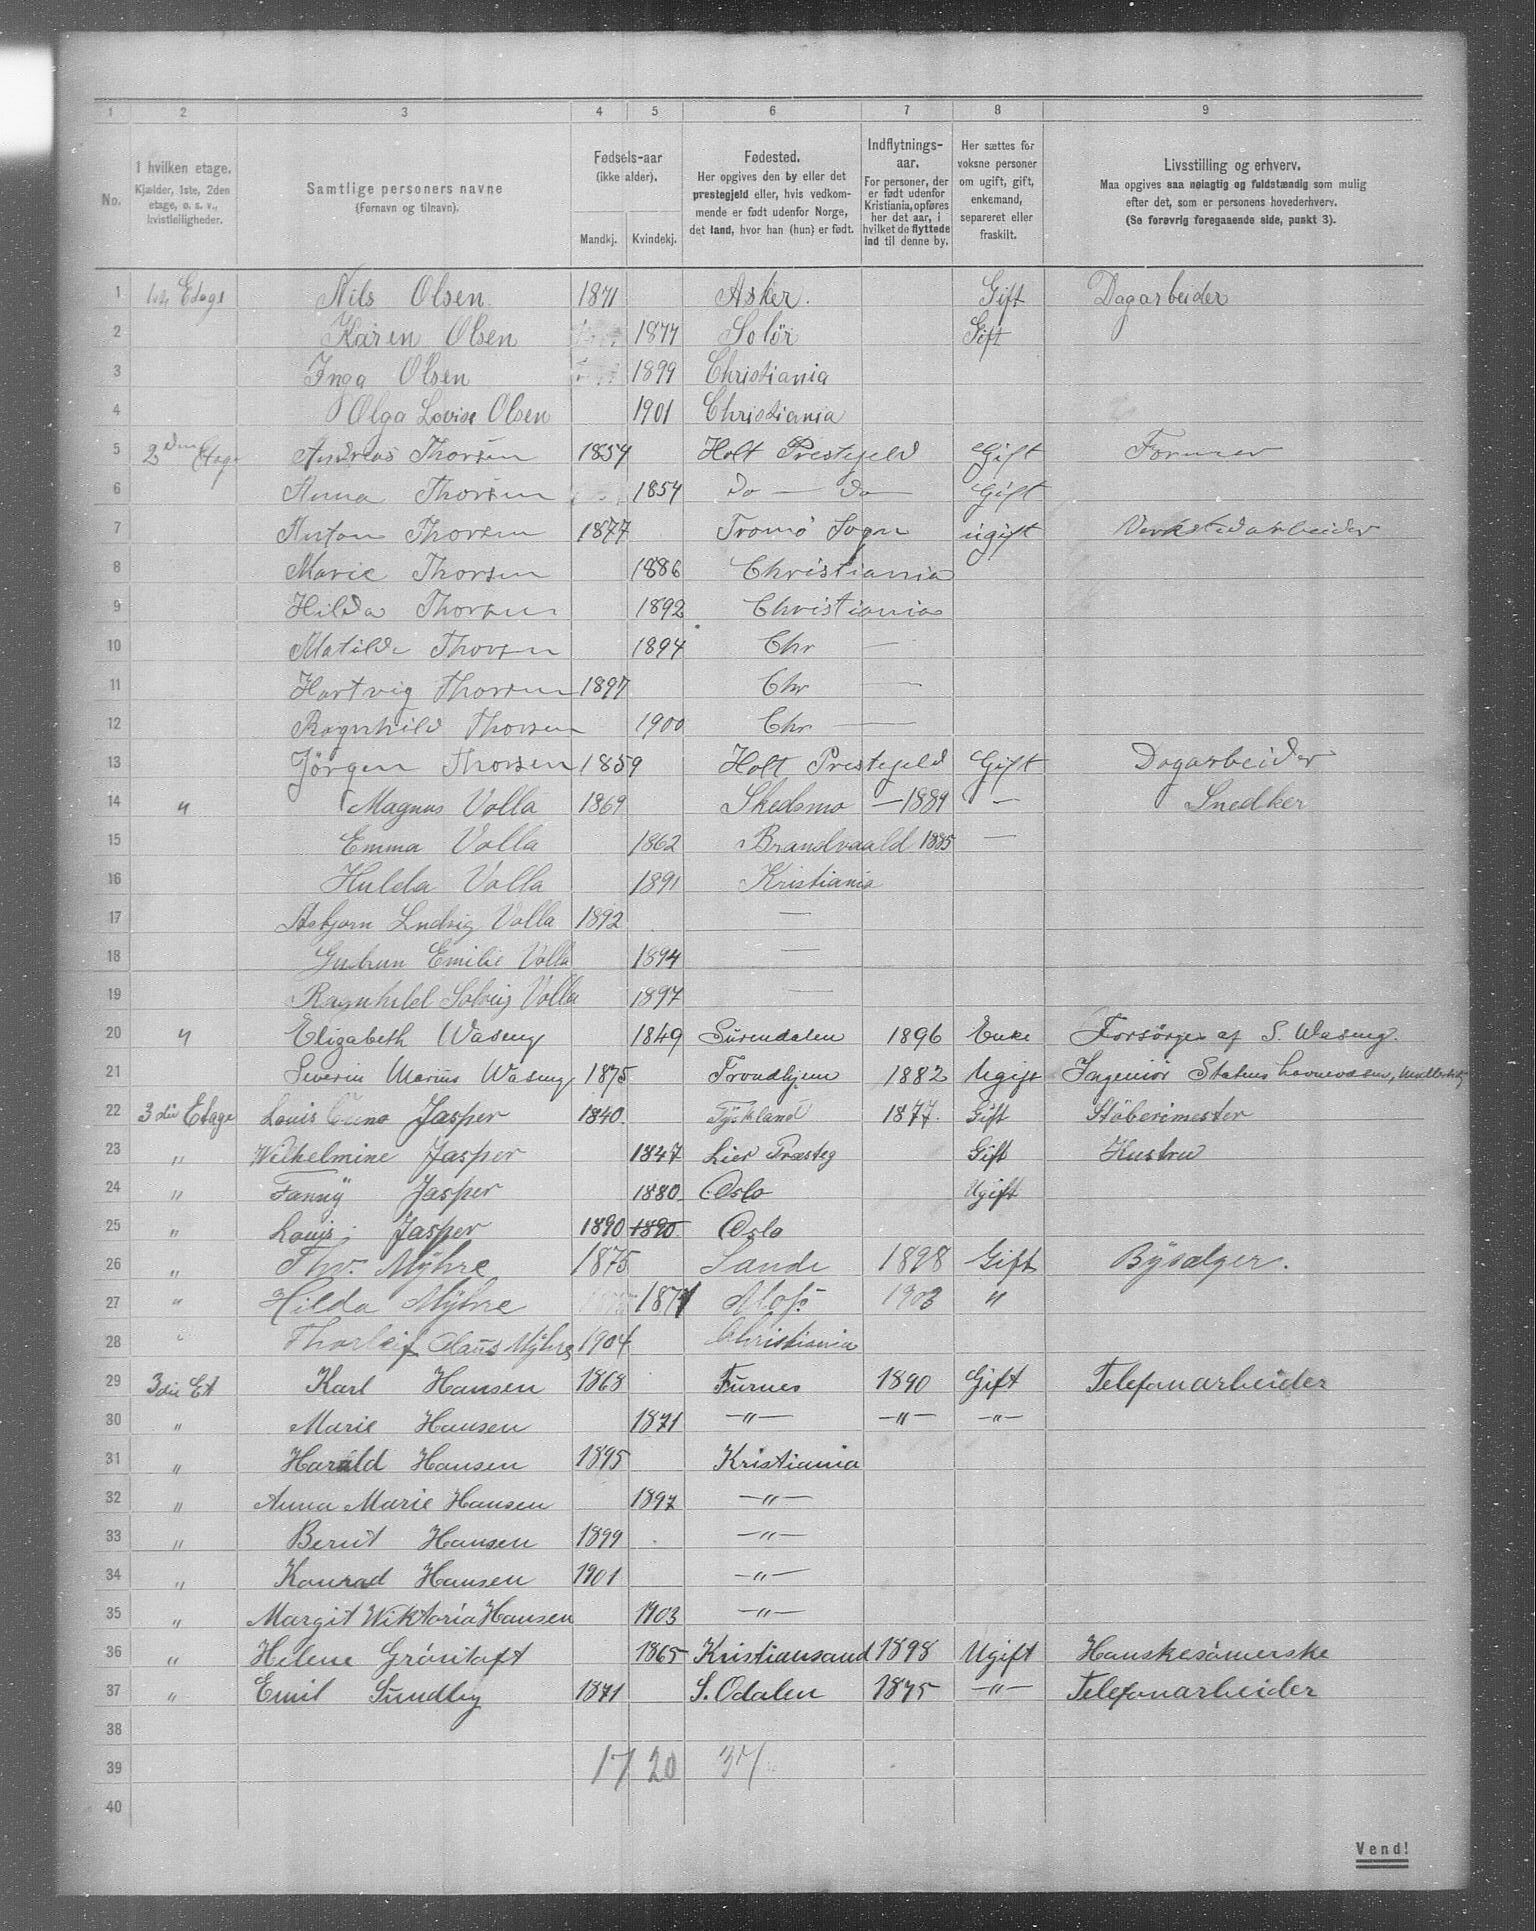 1 2 3 4 5 6 7 8 9
No.
I hvilken etage.
Kjælder, 1ste, 2den
etage, o. s. v.,
kvistleiligheder.
Samtlige personers navne
(Fornavn og tilnavn).
Fødsels-aar
(ikke alder).
Mandkj. Kvindekj.
Fødested.
Her opgives den by eller det
prestegjeld eller, hvis vedkom-
mende er født udenfor Norge,
det land, hvor han (hun) er født.
Indflytnings-
aar.
For personer, der
er født udenfor
Kristiania, opføres
her det aar, i
hvilket de flyttede
ind til denne by.
Her sættes for
voksne personer
om ugift, gift,
enkemand,
separeret eller
fraskilt.
Livsstilling og erhverv.
Maa opgives saa nøiagtig og fuldstændig som mulig
efter det, som er personens hovederhverv.
(Se forøvrig foregaaende side, punkt 3).
1 1ste Etage Nils Olsen 1871 Asker. Gift Dagarbeider
2 Karen Olsen 1877 Solör Gift
3 Inga Olsen 1899 Christiania
4 Olga Lovise Olsen 1901 Christiania
5 2den Etage Andreas Thorsen 1854 Holt Prestegjeld Gift Former
6 Anna Thorsen 1854 Do — Do — Gift
7 Anton Thorsen 1877 Tromö Sogn ugift Verkstedarbeider
8 Marie Thorsen 1886 Christiania
9 Hilda Thorsen 1892 Christiania
10 Matilde Thorsen 1894 Chr —
11 Hartvig Thorsen 1897 Chr —
12 Ragnhild Thorsen 1900 Chr —
13 Jörgen Thorsen 1859 Holt Prestegjeld Gift Dagarbeider
14 " Magnus Volla 1869 Skedsmo — 1889 — Snedker
15 Emma Volla 1862 Brandvaald 1885 —
16 Hulda Volla 1891 Kristiania
17 Asbjørn Ludvig Volla 1892 —
18 Gudrun Emilie Volla 1894 —
19 Ragnhild Solveig Volla 1897 —
20 " Elizabeth Waseng 1849 Surendalen 1896 Enke Forsørges af S. Waseng.
21 Severin Marius Waseng 1875 Trondhjem 1882 Ugift Ingeniør Statens havnevæsen,
22 3die Etage Louis Cuno Jasper 1840. Tyskland 1877. Gift Støberimester
23 " Wilhelmine Jasper 1847 Lier Præsteg Gift Hustru
24 " Fanny Jasper 1880 Oslo Ugift
25 " Louis Jasper 1890 1890. Oslo
26 " Thv. Mÿhre 1875 Sande 1898 Gift Bÿsælger.
27 " Hilda Mÿhre 1871 Moss 1903 "
28 " Thorleif Claus Mÿhre 1904 Christiania
29 3die Et Karl Hansen 1868 Furnes 1890 Gift Telefonarbeider
30 " Marie Hansen 1871 —"— —"— —"—
31 " Harald Hansen 1895 Kristiania
32 " Anna Marie Hansen 1897 —"—
33 " Berut Hansen 1899 —"—
34 " Konrad Hansen 1901 —"—
35 " Margit Wiktoria Hansen 1903 —"—
36 " Helene Gröntoft 1865 Kristiansand 1898 Ugift Hanskesömerske
37 " Emil Sundby 1871 S. Odalen 1875 —"— Telefonarbeider
38
39 17 20 37
40
Vend!